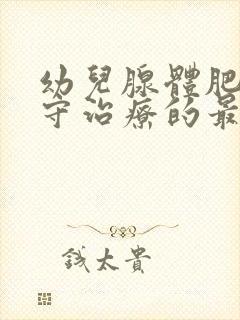 幼兒腺體肥
守治療的最
錢太貴